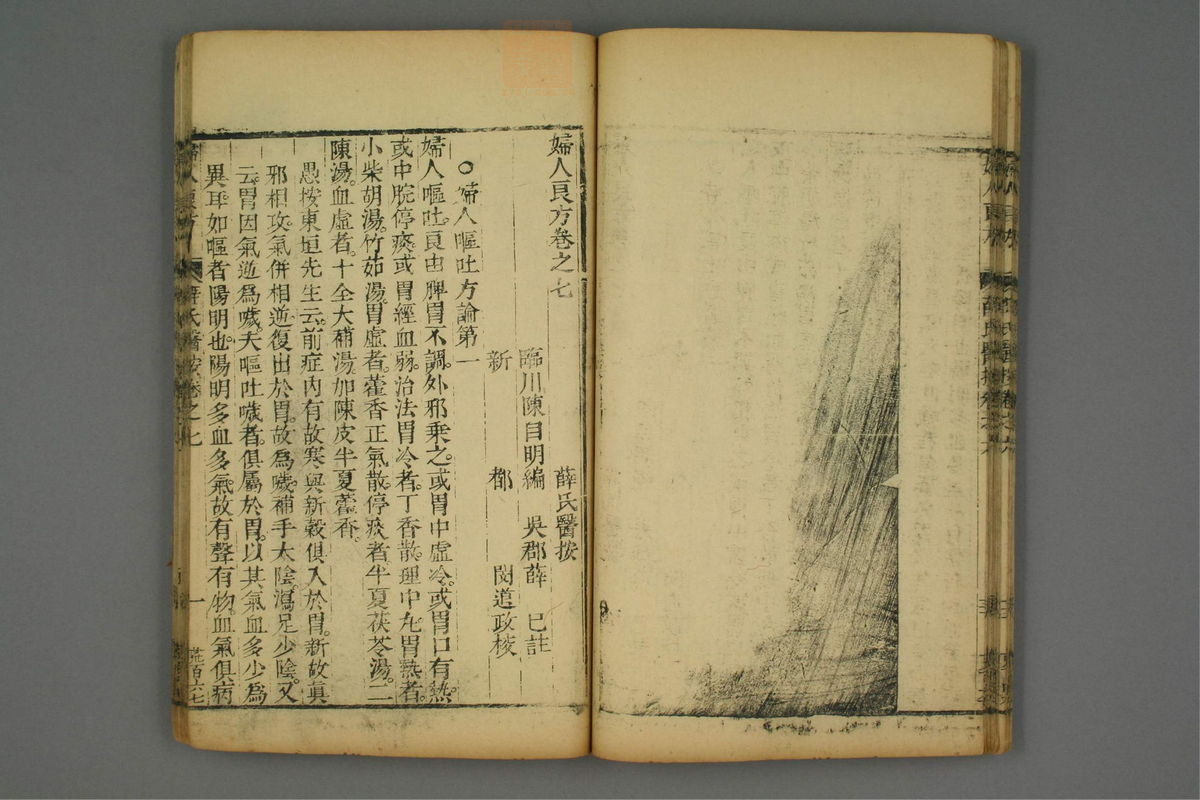 婦人良方卷之七
薛氏醫按
臨川陳自明編 吳郡薛 已註
新 都 閔道政梭
○婦人嘔吐方論第一
婦人嘔吐。良由脾胃不調。外邪乗之。或胃中虛冷。或胃口有熱。
或中脘停痰。或胃經血弱。治法胃冷者。丁香散。理中丸。胃熱者。
小柴胡湯。竹茹湯。胃虛者。藿香正氣散。停痰者。半夏茯苓湯。二
陳湯。血虛者。十全大補湯。加陳皮半夏藿香。
愚按東垣先生云。前症內有故寒與新穀俱入於胃。新故真
邪相攻。氣併相逆。復出於胃。故為噦。補手太陰。瀉足少陰。又
云。胃因氣逆為噦。夫嘔吐噦者。俱屬於胃。以其氣血多少為
異耳。如嘔者陽明也。陽明多血多氣。故有聲有物。血氣俱病
婦人良方
薛氏醫按卷之七
一